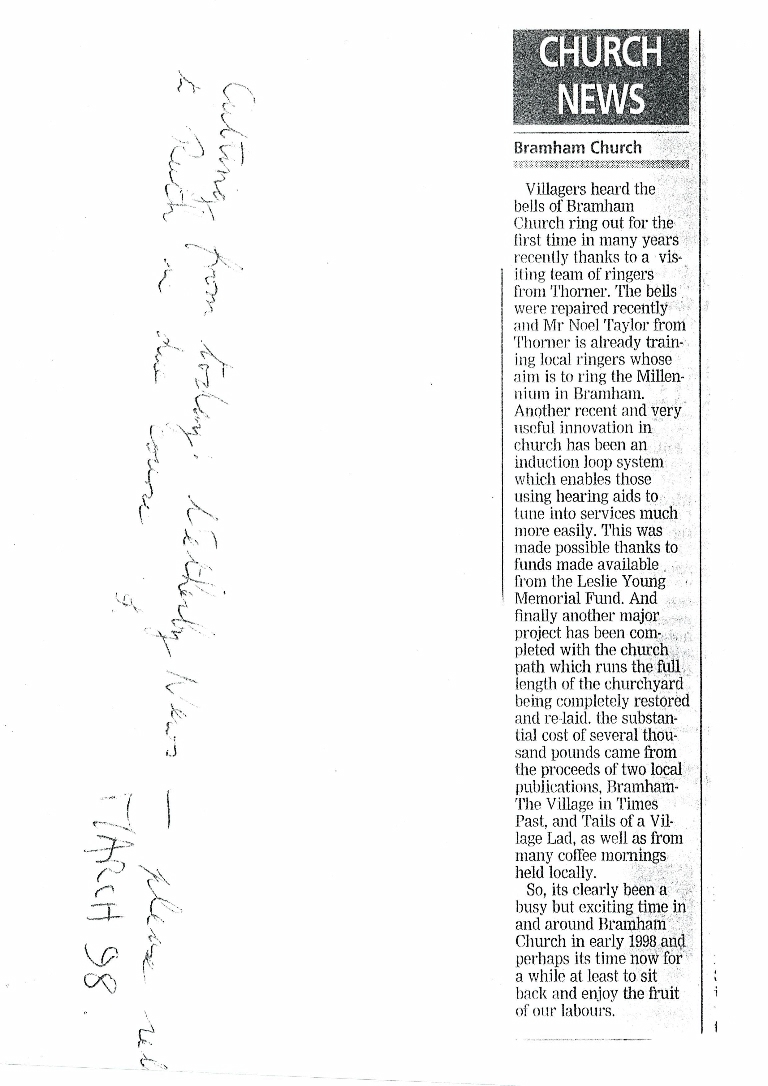 CHURCH
NEWS
Bramham Church
Villagers heard the
bells of Bramham
Church ring out for the
first time in many years
recently thanks to a vis-
iting team of ringers
from Thorner. The bells
were repaired recently
and Mr Noel Taylor from
Thorner is already train-
ing local ringers whose
aim is to ring the Millen-
nium in Bramham.
Another recent and very
useful innovation in
church has been an
induction loop system
which enables those
using hearing aids to
tune into services much
more easily. This was
made possible thanks to
funds made available
from the Leslie Young
Memorial Fund. And
finally another major
project has been com-
pleted with the church
path which runs the full
length of the churchyard
being completely restored
and re-laid. the substan-
tial cost of several thou-
sand pounds came from
the proceeds of two local
publications, Bramham-
The Village in Times
Past, and Tails of a Vil-
lage Lad, as well as from
many coffee mornings
held locally.
So, its clearly been a
busy but exciting time in
and around Bramham
Church in early 1998 and
perhaps its time now for
a while at least to sit
back and enjoy the fruit
of our labours.
Cutting from today's Wetherby News — please
to Ruth in due course
MARCH 98.